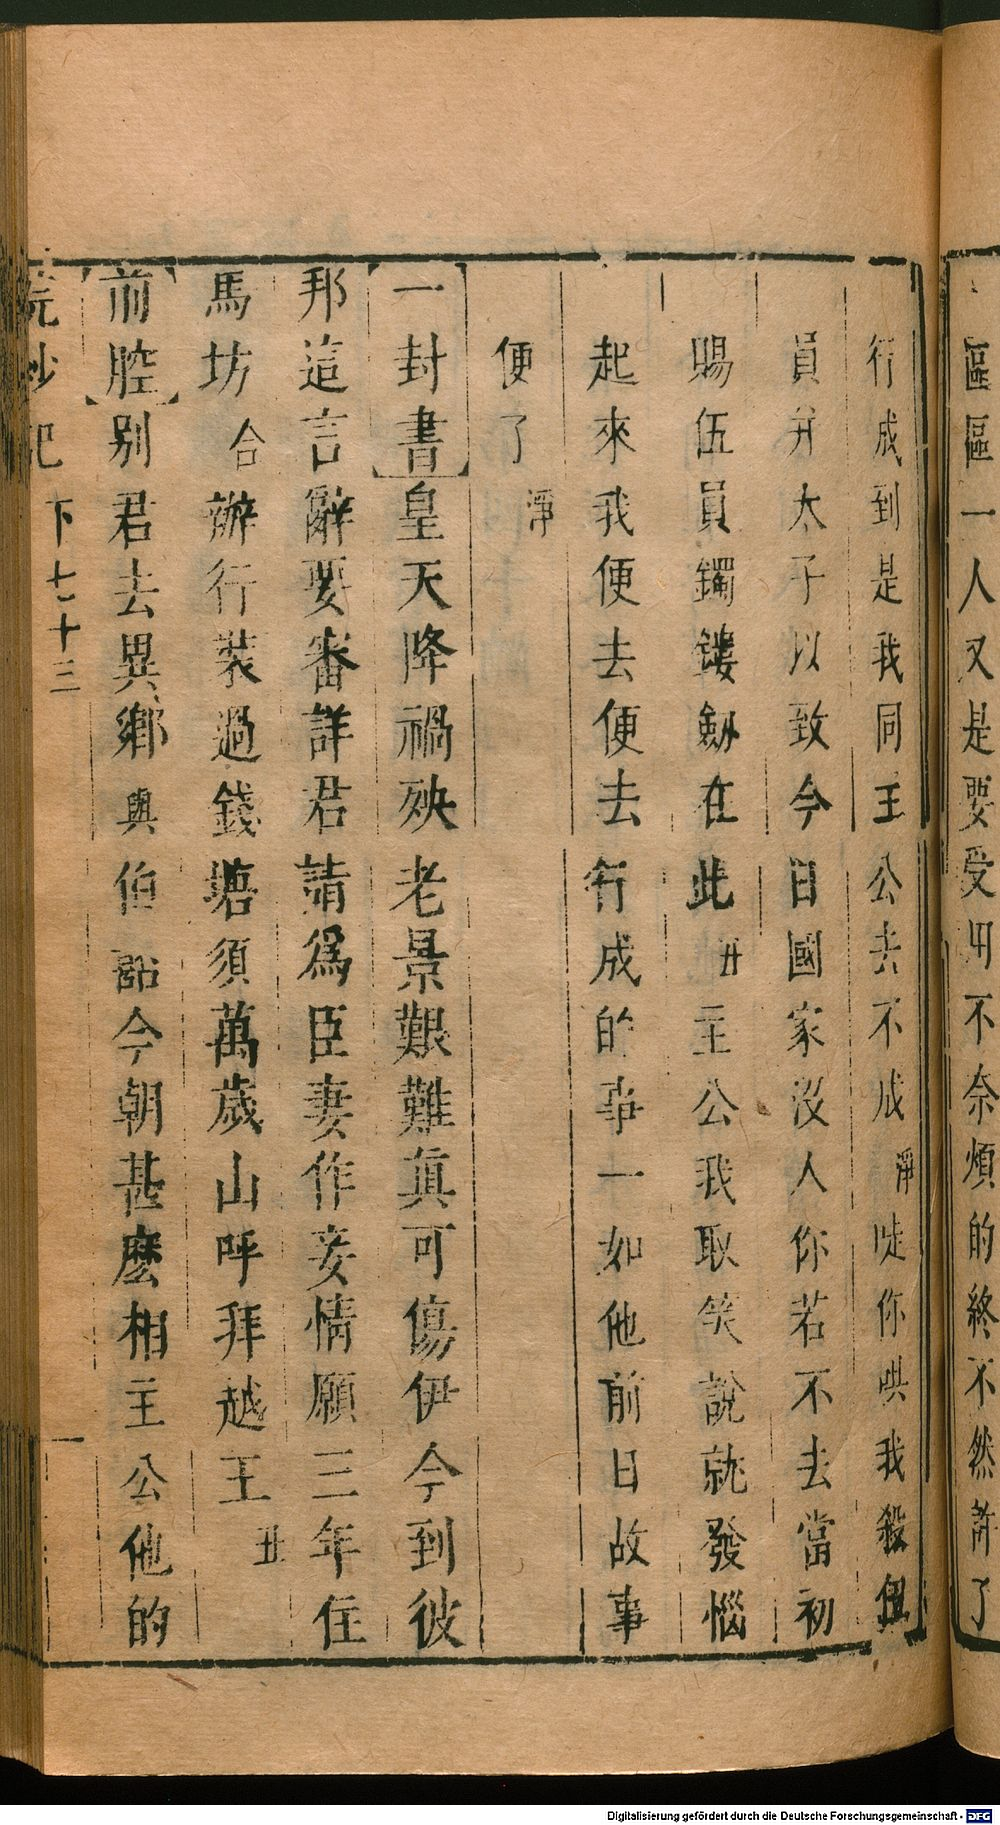 區區一人又是要受用不奈煩的終不然許了
行成到是我同王公去不成淨唗你哄我殺伍
員并太子以致今日國家沒人你若不去當初
賜伍員鐲鏤劍在此丑主公我取笑說就發惱
起來我便去便去行成的事一如他前日故事
便了淨
一封書皇天降禍殃老景艱難真可傷伊今到彼
邦這言辭要審詳君請為臣妻作妾情願三年住
馬坊合辦行裝過錢塘須萬歲山呼拜越王丑
前腔别君去異鄉與伯嚭今朝甚麽相主公他的
浣紗記 下七十三
Digitalisierung gefördert durch die Deutsche Forschungsgemeinschaft - DFG